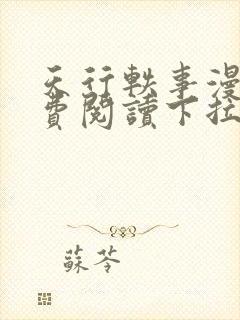 天行軼事漫
費閱讀下拉
蘇苓